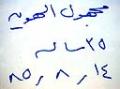 مجهول الهوية
٢٥ ساله
٨٥٫٨٫١٤